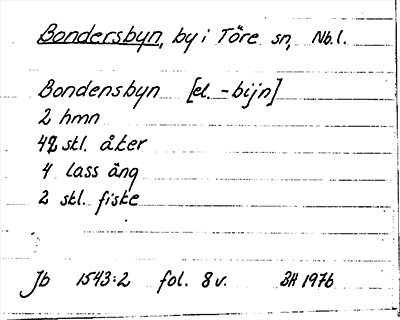 Bondersbyn, by i Töre sn, Nb.l.
Bondensbyn [el. -bijn]
2 hmn
42 stl. åker
4 lass äng
2 skl. fiske
Jb 1543:2 fol. 8 v. BH 1976